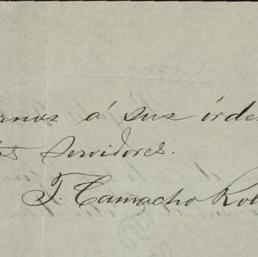 rnos á sus órde
s servidores.
T. Camacho Rol